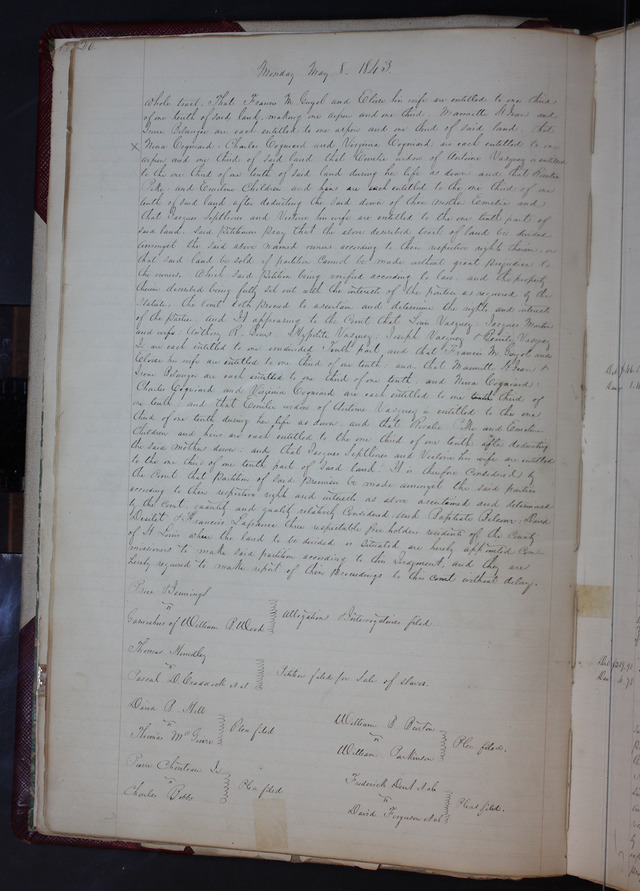 Monday May 8. 1843.
whole tract. That Francis M. Guyol and Cloise his wife are entitled to one third
of one tenth of said land, making one arpen and one third. Mannette St Jean and
Irene Belanger are each entitled to one arpen and one third of said land. That
Nina Cognard. Charles Cognard and Virginia Cognard are each entitled to one
arpen and one third of said land that Emelie widow of Antoine Vasquez is entitled
to the one third of one tenth of said land during her life as down and that
and Emeline Children and heirs are each entitled to the one third of one
tenth of said land after deducting the said down of their mother Emelie and
that Jacques Septlievre and Victoire his wife are entitled to the one tenth part of
said land. Said Petitioners pray that the above described tract of land be divided
amongst the said above named owners according to their respective rights therein or
that said land be sold if partition cannot be made without great prejudice to
the owners. Which said petition being verified according to law. and the property
therein described being fully set out with the interests of the parties as required by the
Statute. The Court doth proceed to ascertain and determine the rights and interests
of the parties. And It appearing to the Court that Louis Vasquez. Jacques
and wife. Anthony R. Hypolite Vasquez, Joseph Vasquez & Vasquez
Jr are each entitled to one undivided Tenth part, and that Francis M. Guyol and
Cloise his wife are entitled to one third of one tenth, and that Mannette St Jean &
Irene Belanger are each entitled to one third of one tenth, and Nina Cognard,
Charles Cognard and Virginia Cognard are each entitled to one third of
one tenth, and that Emelie widow of Antoine Vasquez is entitled to the one
third of one tenth during her life as down. and that and Emeline
Children and heirs are each entitled to the one third of one tenth after deducting
the said mother down. and that Jacques Septlievre and Victoire his wife are entitled
to the one third of one tenth part of said land. It is therefore Considered by
the Court that partition of said Premises be made amongst the said parties
according to their respective rights and interests as above ascertained and determined
by the Court, quantity and quality relatively Considered and Baptiste David
& Francois three respectable free holders residents of the County
of St Louis where the land to be divided is situated are hereby appointed Com
missioners to make said partition according to this Judgment, and they are
hereby required to make report of their proceedings to this Court without delay.
vs
Garnishee of William P. Wood
Allegation & Interrogatories filed
Thomas
vs
Pascal D. Craddock et al
Petition filed for Sale of Slaves.
David B. Hill
vs
Thomas McGuire
Plea filed
William B.
vs
William Parkinson
Plea filed.
Pierre Chouteau Jr
vs
Charles
Plea filed
Frederick Dent et al
vs
David Ferguson et al
Pleas filed.